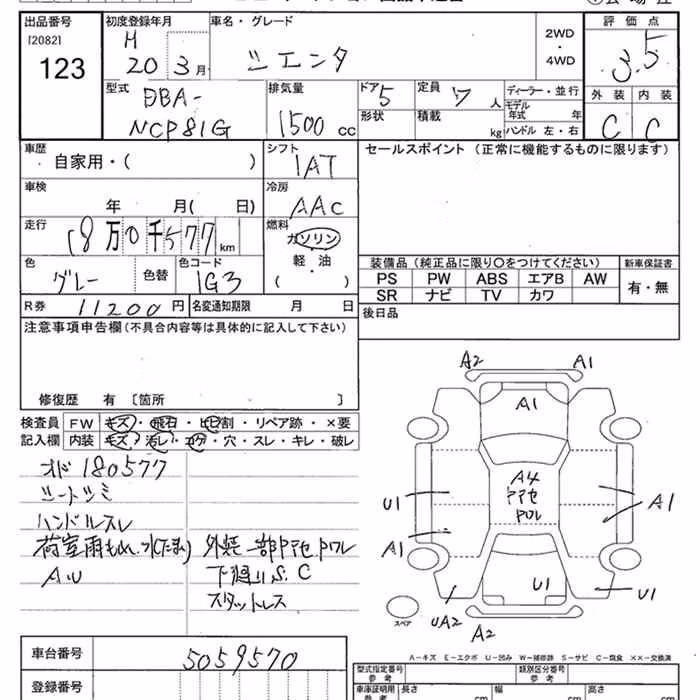 出品番号
[2082]
123
初度登録年月
H
20 3 月
車名・グレード
シエンタ
2WD
・
4WD
評価点
3.5
外装 内装
C C
型式
DBA-
NCP81G
排気量
1500 cc
ドア 5
形状
定員 7 人
積載 kg
ディーラー・並行
モデル年式 年
ハンドル 左・右
車歴
自家用・( )
シフト
IAT
セールスポイント (正常に機能するものに限ります)
車検
年 月( 日)
冷房
AAC
走行
18万0千577 km
燃料
ガソリン
軽油
・
( )
色
グレー
色替
色コード
1G3
装備品 (純正品に限り○をつけてください)
新車保証書
PS PW ABS エアB AW
SR ナビ TV カワ
有・無
R券 11200 円
名変通知期限 月 日
後日品
注意事項申告欄 (不具合内容等は具体的に記入して下さい)
修復歴 有 〔箇所 〕
検査員
記入欄
FW キズ・飛石・ヒビ割・リペア跡・×要
内装 キズ・汚レ・コゲ・穴・スレ・キレ・破レ
オド180577
シートシミ
ハンドルスレ
荷室雨もれ、水(たまり)
A.U
外装一部ハゲ
下廻りS.C
スタットレス
A2 A1
A1
A4
U1
A1
A1
U1
UA2
U1
A2
スペア
A-キズ E-エクボ U-凹み W-補修跡 S-サビ C-腐食 ××-交換済
車台番号
5059570
登録番号
型式指定番号
参考
類別区分番号
参考
車庫証明用
参考
長さ cm
幅 cm
高さ cm